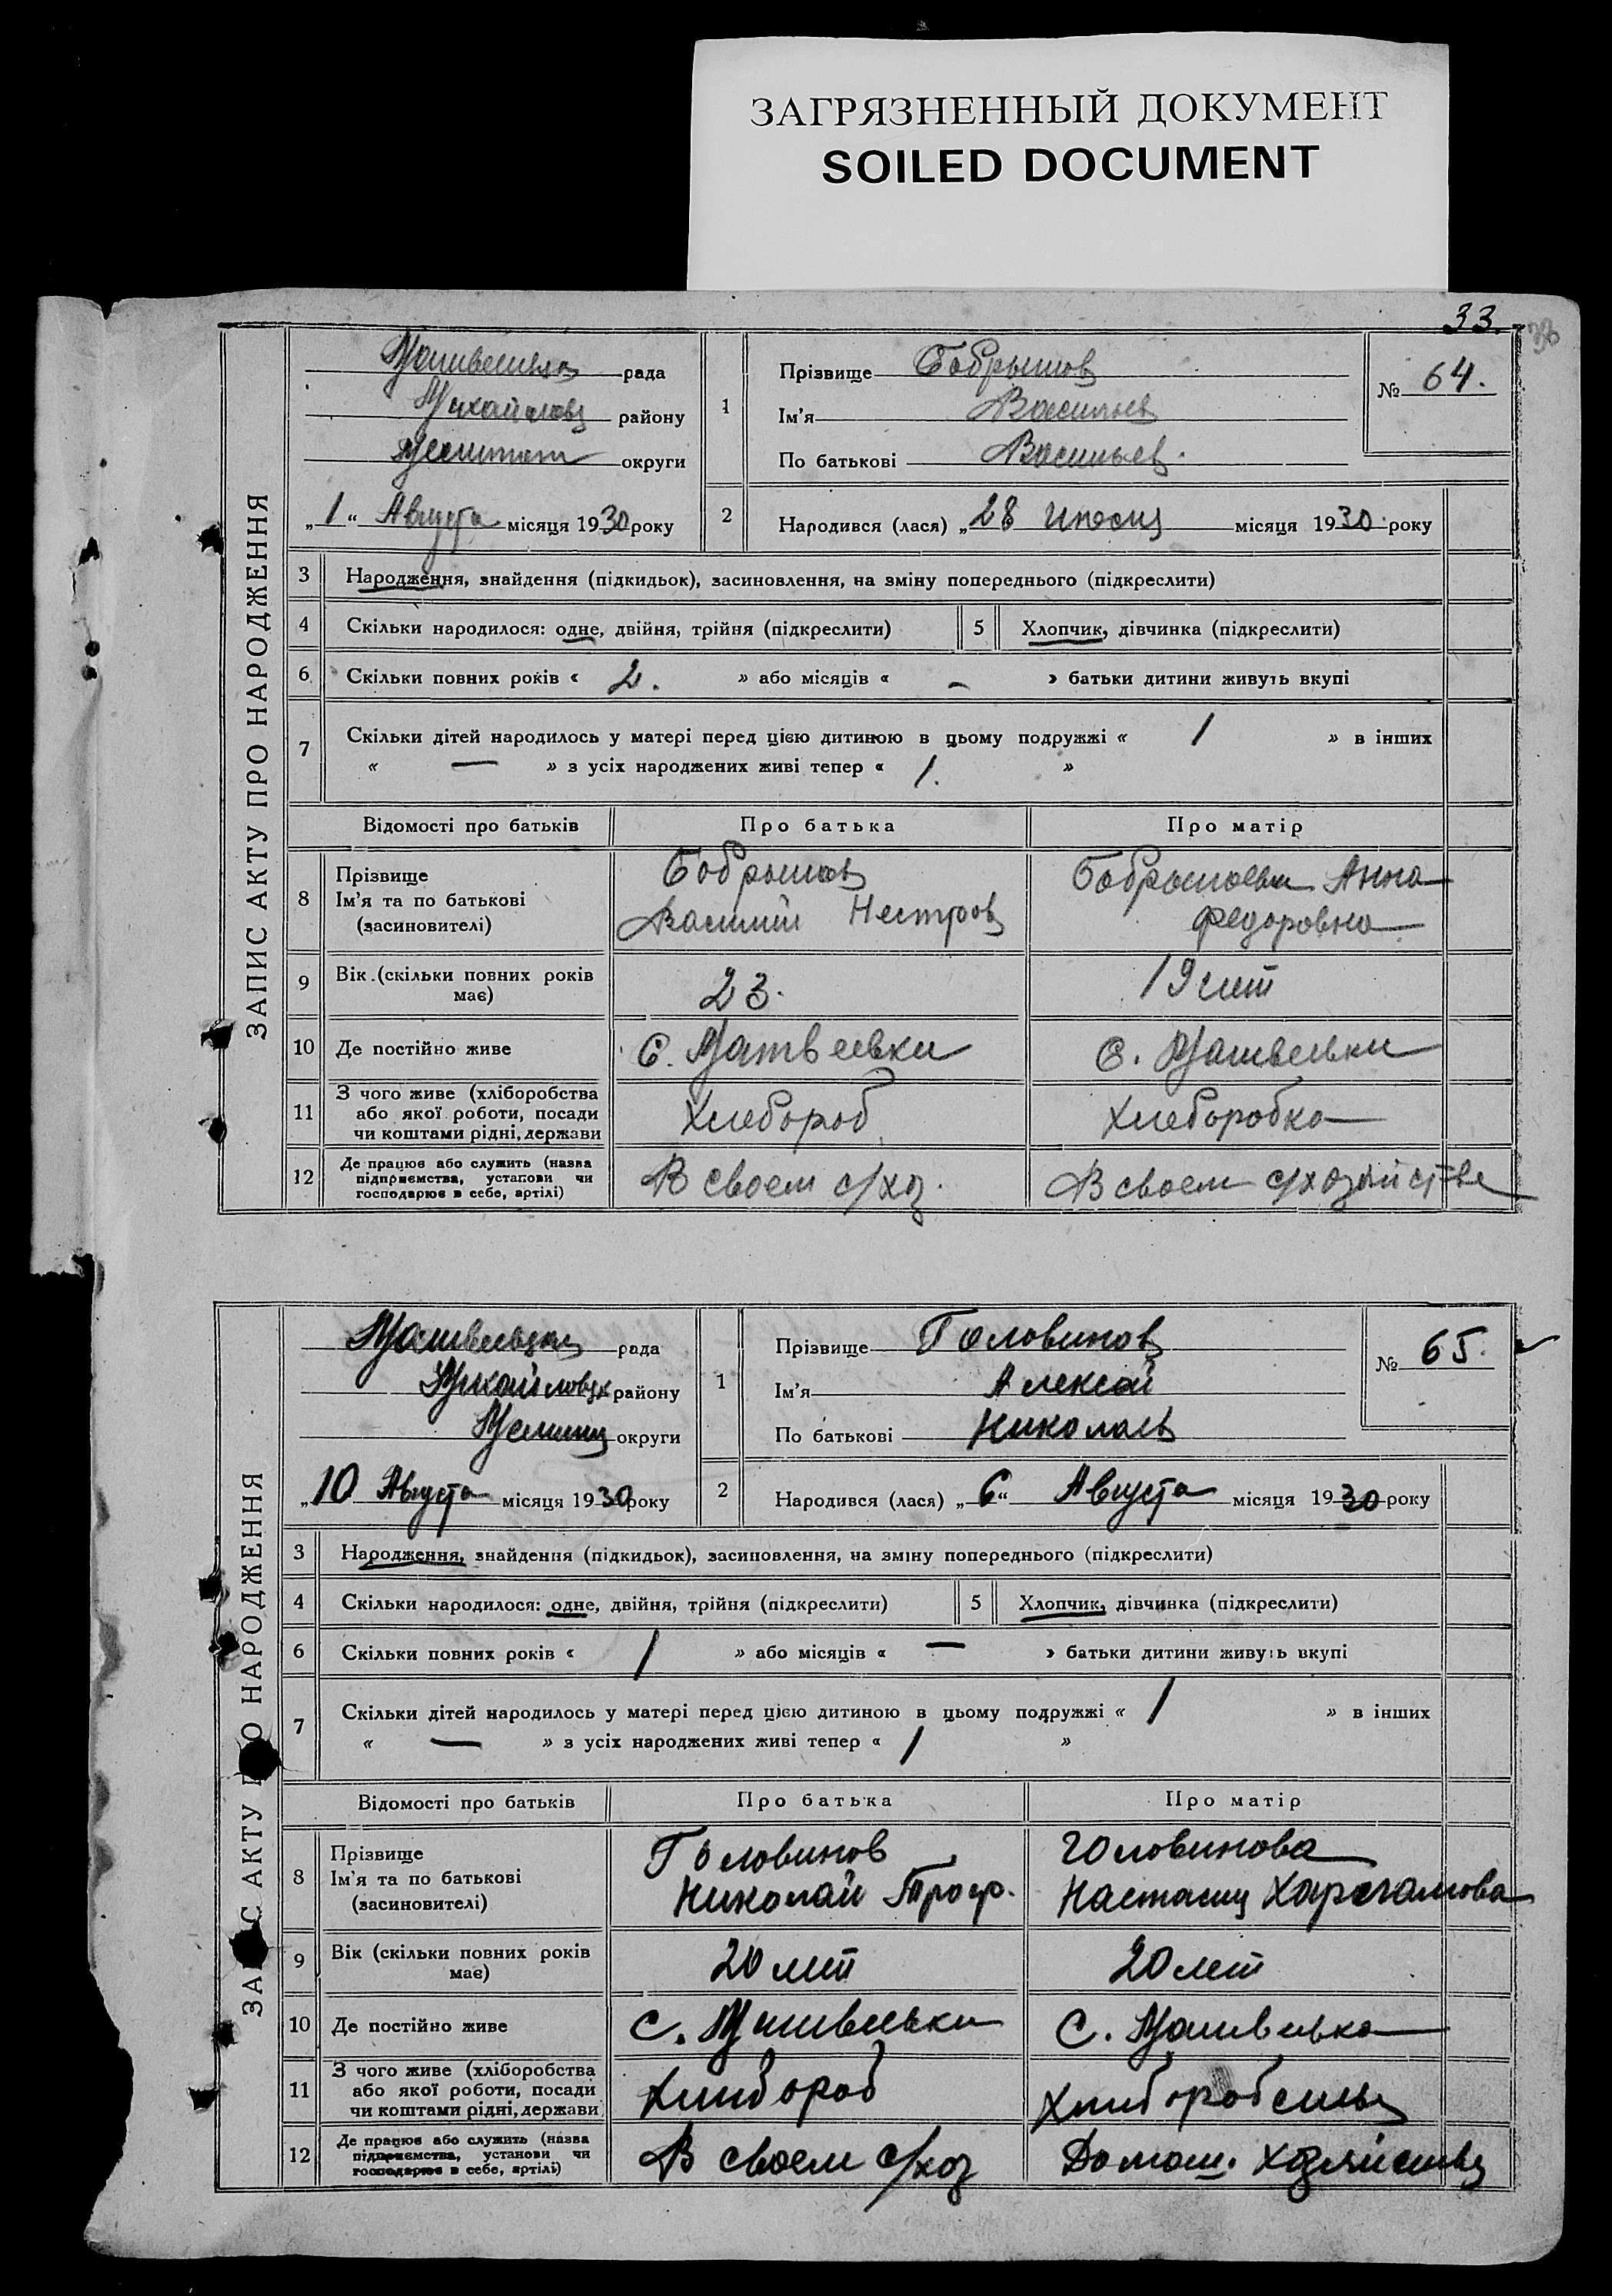 ЗАГРЯЗНЕННЫЙ ДОКУМЕНТ
SOILED DOCUMENT
33.
ЗАПИС АКТУ ПРО НАРОДЖЕННЯ
рада
району
округи
„1“ Августа місяця 1930 року
1
Прізвище
Ім'я
По батькові Васильев.
№ 64.
2
Народився (лася) „28 місяця 1930 року
3 Народження, знайдення (підкидьок), засиновлення, на зміну попереднього (підкреслити)
4 Скільки народилося: одне, двійня, трійня (підкреслити) 5 Хлопчик, дівчинка (підкреслити)
6 Скільки повних років « 2. » або місяців « – » батьки дитини живуть вкупі
7 Скільки дітей народилось у матері перед цією дитиною в цьому подружжі « 1 » в інших
« — » з усіх народжених живі тепер « 1. »
Відомості про батьків Про батька Про матір
8 Прізвище
Ім'я та по батькові
(засиновителі)
Василий Нестров
Анна
Федоровна
9 Вік (скільки повних років має) 23. 19 лет
10 Де постійно живе С. Матвеевки С. Матвеевки
11 З чого живе (хліборобства або якої роботи, посади чи коштами рідні, держави Хлебороб Хлеборобка
12 Де працює або служить (назва підприємства, установи чи господарює в себе, артілі) В своем с/хоз. В своем с/хозяйстве
ЗАПИС АКТУ ПРО НАРОДЖЕННЯ
рада
району
округи
„10 Августа місяця 1930 року
1
Прізвище Головинов
Ім'я Алексей
По батькові Николаев
№ 65.
2
Народився (лася) „6“ Августа місяця 1930 року
3 Народження, знайдення (підкидьок), засиновлення, на зміну попереднього (підкреслити)
4 Скільки народилося: одне, двійня, трійня (підкреслити) 5 Хлопчик, дівчинка (підкреслити)
6 Скільки повних років « 1 » або місяців « — » батьки дитини живуть вкупі
7 Скільки дітей народилось у матері перед цією дитиною в цьому подружжі « 1 » в інших
« — » з усіх народжених живі тепер « 1 »
Відомості про батьків Про батька Про матір
8 Прізвище
Ім'я та по батькові
(засиновителі)
Головинов
Николай Троф.
Головинова
9 Вік (скільки повних років має) 20 лет 20 лет
10 Де постійно живе С. Матвеевки С. Матвеевка
11 З чого живе (хліборобства або якої роботи, посади чи коштами рідні, держави Хлебороб
12 Де працює або служить (назва підприємства, установи чи господарює в себе, артілі) В своем с/хоз Домош.